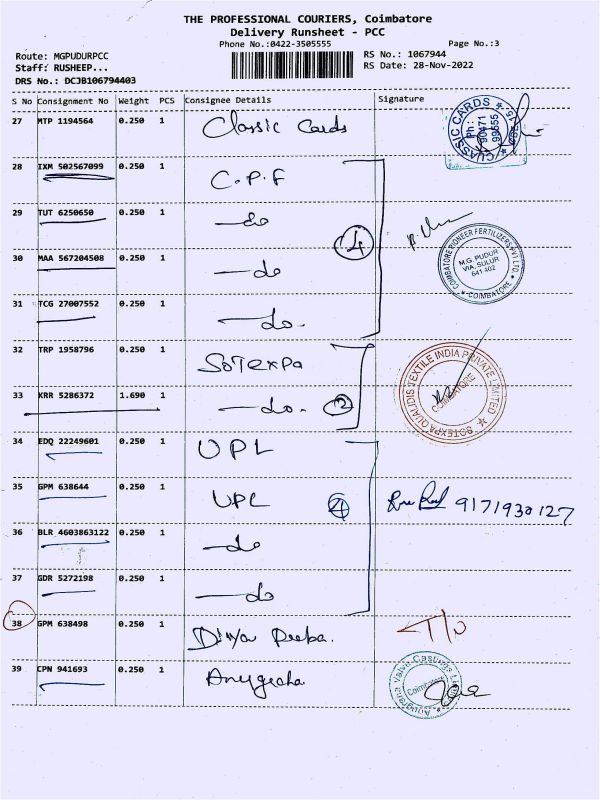 THE PROFESSIONAL COURIERS, Coimbatore
Delivery Runsheet - PCC
Phone No.:0422-3505555
Page No.:3
Route: MGPUDURPCC
RS No.: 1067944
Staff: RUSHEEP...
RS Date: 28-Nov-2022
DRS No.: DCJB106794403
S No Consignment No Weight PCS Consignee Details Signature
27 MTP 1194564 0.250 1 Classic Cards
CLASSIC CARDS
Ph:
90471
99555
28 IXM 502567099 0.250 1 C.P.F
29 TUT 6250650 0.250 1 —do
4
30 MAA 567204508 0.250 1 —do
COIMBATORE PIONEER FERTILIZERS PVT LTD
M.G. PUDUR
VIA. SULUR
641 402
COIMBATORE
31 TCG 27007552 0.250 1 —do.
32 TRP 1958796 0.250 1 SOTEXPA
33 KRR 5286372 1.690 1 —do. 2
SOTEXPA QUALIDIS TEXTILE INDIA PRIVATE LIMITED
COIMBATORE
34 EDQ 22249601 0.250 1 UPL
35 GPM 638644 0.250 1 UPL 4 9171930127
36 BLR 4603863122 0.250 1 —do
37 GDR 5272198 0.250 1 —do
38 GPM 638498 0.250 1 Divya T/o
39 CPN 941693 0.250 1
Valve Castings
Coimbatore